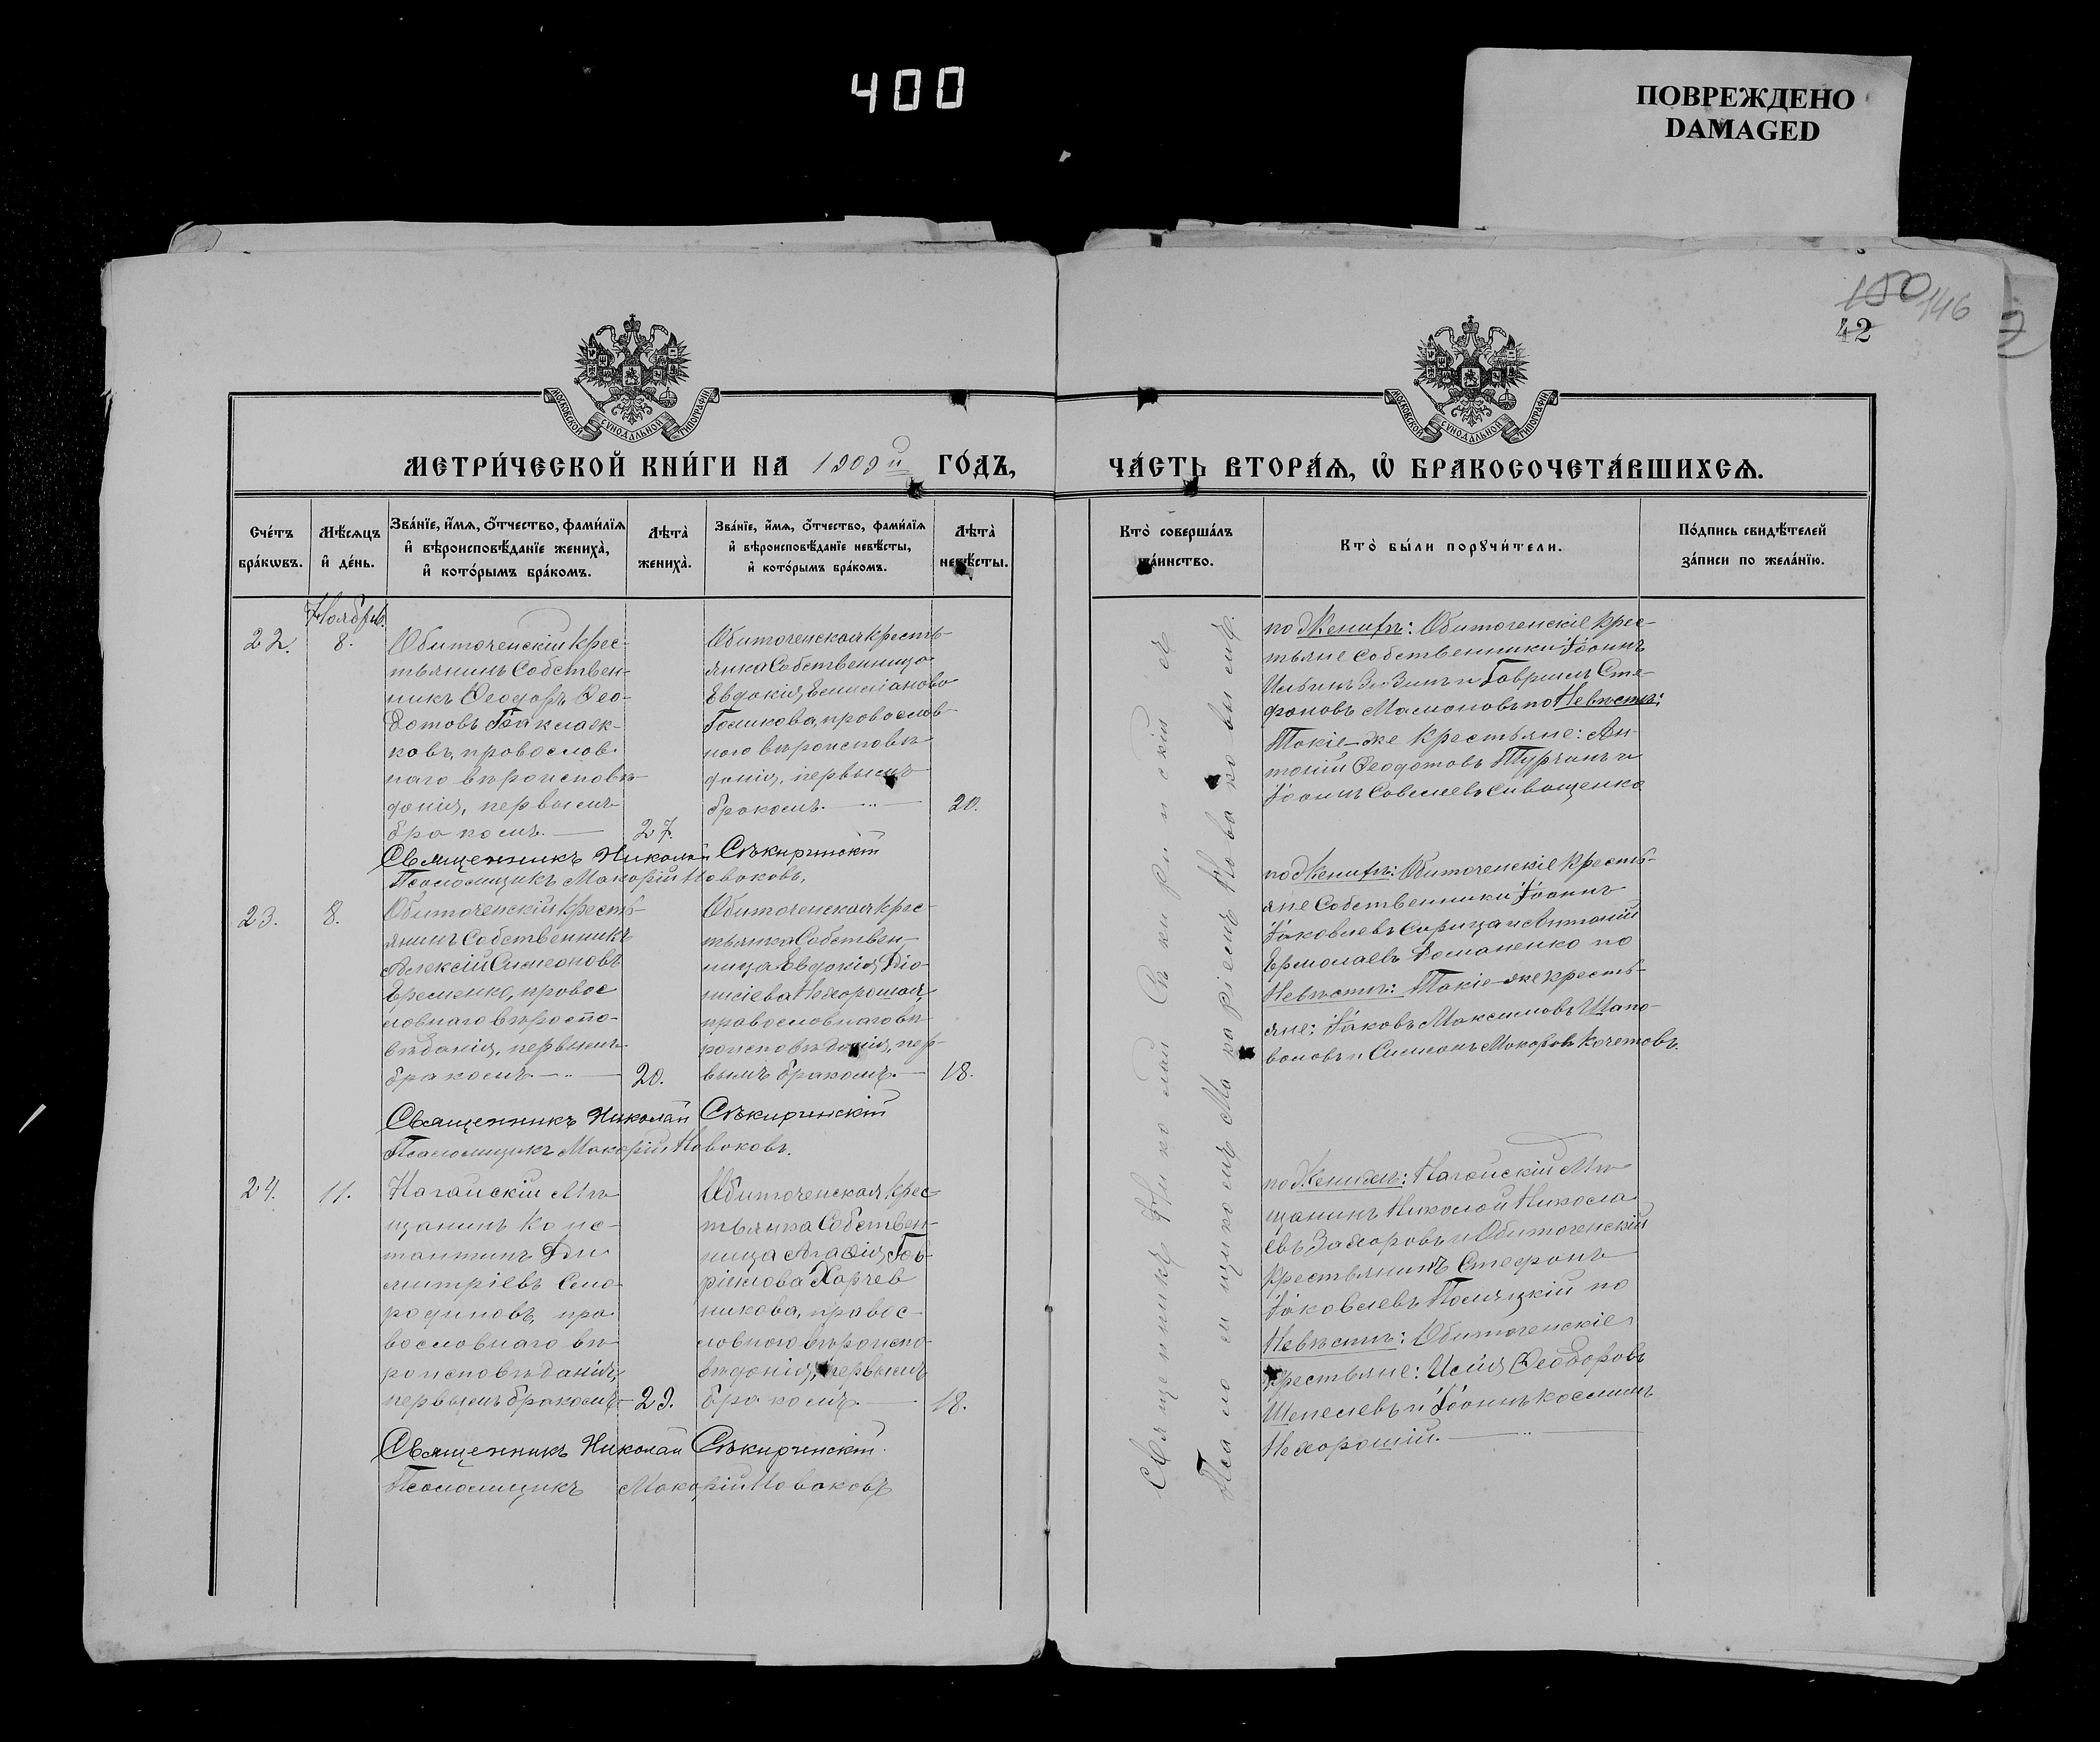 400
ПОВРЕЖДЕНО
DAMAGED
150 146
42
МОСКОВСКОЙ СѴНОДАЛЬНОЙ ТИПОГРАФІИ
МОСКОВСКОЙ СѴНОДАЛЬНОЙ ТИПОГРАФІИ
МЕТРИ́ЧЕСКОЙ КНИ́ГИ НА 1909й ГО́ДЪ,
ЧА́СТЬ ВТОРА́Ѧ, Ѽ БРАКОСОЧЕТА́ВШИХСѦ.
Сче́тъ
бра́кѡвъ.
Мѣ́сѧцъ
и҆ де́нь.
Зва́нїе, и҆́мѧ, ѻ҆́тчество, фами́лїѧ
и҆ вѣроисповѣ́данїе жениха̀,
и҆ кото́рымъ бра́комъ.
Лѣта̀
жениха̀.
Зва́нїе, и҆́мѧ, ѻ҆́тчество, фами́лїѧ
и҆ вѣроисповѣ́данїе невѣ́сты,
и҆ кото́рымъ бра́комъ.
Лѣта̀
невѣ́сты.
Кто̀ соверша́лъ
та́инство.
Кто̀ бы́ли порꙋчи́тели.
По́дпись свидѣ́телей
за́писи по жела́нїю.
Ноябрь.
22.
8.
Обиточенскій крес-
тьянинъ Собствен-
никъ Ѳеодоръ Ѳео-
дотовъ
ковъ, провослов-
наго вѣроисповѣ-
данія, первымъ
бракомъ.
27.
Обиточенская кресть-
янка Собственница
Евдокія Емиліанова
Голикова, провослов-
ного вѣроисповѣ-
данія, первымъ
бракомъ.
20.
Священникъ Николай Сѣкиринскій
Псаломщикъ Макарій Новаковъ.
23.
8.
Обиточенскій кресть-
янинъ Собственникъ
Алексій Симеоновъ
Еременко, правос
ловнаго вѣроспо-
вѣданія, первымъ
бракомъ.
20.
Обиточенская крес-
тьянка Собствен-
ница Евдокія Діо-
нисіева Нехорошая,
православнаго вѣ-
роисповѣданія, пер-
вымъ бракомъ.
18.
Священникъ Николай Сѣкиринскій
Псаломщикъ Макарій Новаковъ.
24.
11.
Нагайскій Мѣ-
щанинъ Конс-
тантинъ Ди-
митріевъ Смо-
родиновъ, пра-
вославнаго вѣ-
роисповѣданія,
первымъ бракомъ
29.
Обиточенская крес-
тьянка Собствен-
ница Агафія Гав-
ріилова Харчев
никова, правос-
лавнаго вѣроиспо-
вѣданія, первымъ
бракомъ.
18.
Священникъ Николай Сѣкиринскій.
Псаломщикъ Макарій Новаковъ
Священникъ Николай Сѣкиринскій съ
Псаломщикомъ Макаріемъ Новаковымъ.
по Женихѣ: Обиточенскіе крес-
тьяне собственники Іоаннъ
Ильинъ и Гавриилъ Сте-
фановъ Мамоновъ по Невѣстѣ:
Такіе-же крестьяне: Ан-
тоній Ѳеодотовъ Турчинъ и
Іоаннъ Савельевъ Сиващенко
по Женихѣ: Обиточенскіе кресть-
яне Собственники Іоаннъ
Іаковлевъ и Антоній
Ермолаевъ Романенко по
Невѣстѣ: Такіе-же кресть-
яне: Іаковъ Максимовъ Шапо-
валовъ и Симеонъ Макаровъ Кочетовъ.
по Женихѣ: Нагайскій Мѣ-
щанинъ Николай Никола-
евъ Захаровъ и Обиточенскій
крестьянинъ Стефанъ
Іаковлевъ по
Невѣстѣ: Обиточенскіе
крестьяне: Илія Ѳеодоровъ
Шепелевъ и Іоаннъ Космин
Нехорошій.